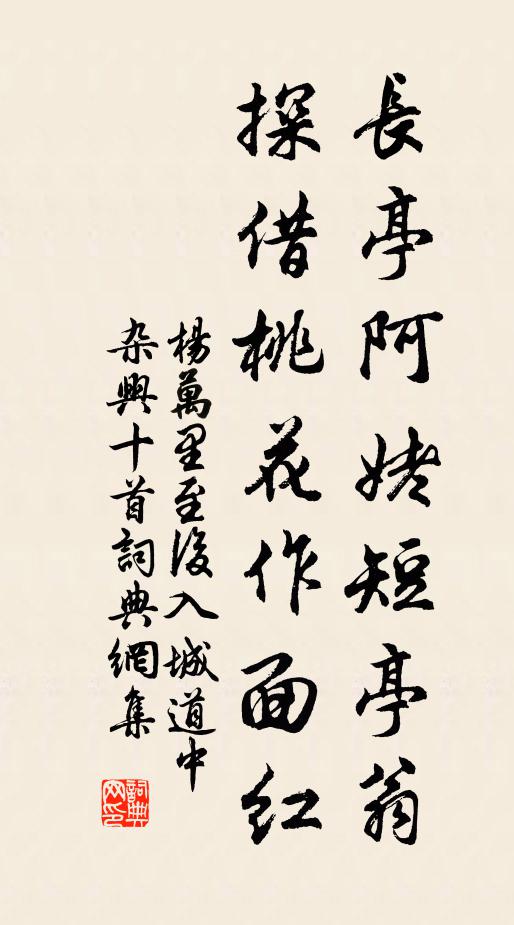 長亭阿姥短亭翁
探借桃花作面紅
楊萬里至後入城道中
杂興十首詞典網集
詞典
网印